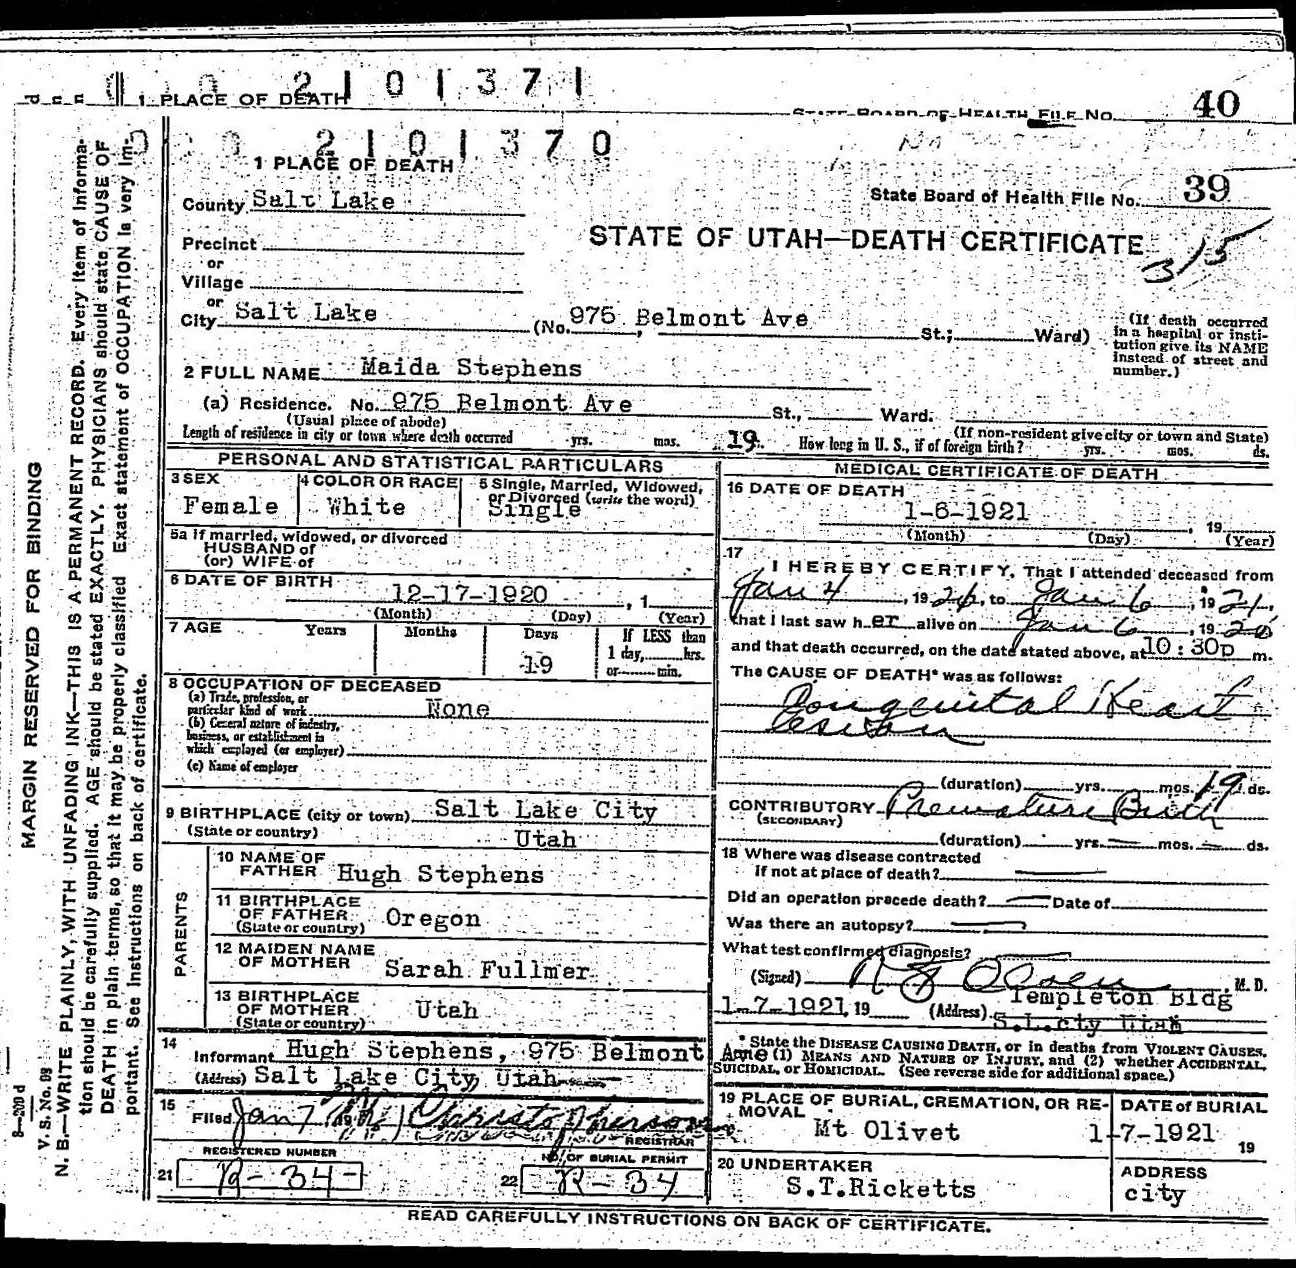 2101371
1 PLACE OF DEATH
STATE BOARD OF HEALTH FILE NO. 40
2101370
1 PLACE OF DEATH
County Salt Lake
State Board of Health File No. 39
STATE OF UTAH—DEATH CERTIFICATE
315
Precinct
or
Village
or
City Salt Lake (No. 975 Belmont Ave St.; Ward)
(If death occurred in a hospital or insti-
tution give its NAME
instead of street and
number.)
2 FULL NAME Maida Stephens
(a) Residence. No. 975 Belmont Ave St., Ward.
(Usual place of abode) (If non-resident give city or town and State)
Length of residence in city or town where death occurred yrs. mos. 19 How long in U. S., if of foreign birth? yrs. mos. ds.
PERSONAL AND STATISTICAL PARTICULARS
3 SEX
Female
4 COLOR OR RACE
White
5 Single, Married, Widowed,
or Divorced (write the word)
Single
5a If married, widowed, or divorced
HUSBAND of
(or) WIFE of
6 DATE OF BIRTH
12-17-1920 , 1
(Month) (Day) (Year)
7 AGE Years Months Days If LESS than
1 day, hrs.
or min.
19
8 OCCUPATION OF DECEASED
(a) Trade, profession, or
particular kind of work None
(b) General nature of industry,
business, or establishment in
which employed (or employer)
(c) Name of employer
9 BIRTHPLACE (city or town) Salt Lake City
(State or country) Utah
PARENTS
10 NAME OF
FATHER Hugh Stephens
11 BIRTHPLACE
OF FATHER Oregon
(State or country)
12 MAIDEN NAME
OF MOTHER Sarah Fullmer
13 BIRTHPLACE
OF MOTHER Utah
(State or country)
14
Informant Hugh Stephens, 975 Belmont Ave
(Address) Salt Lake City Utah
15
Filed Jan 7
REGISTRAR
REGISTERED NUMBER
21 R-34-
NO. OF BURIAL PERMIT
22 R-34
MEDICAL CERTIFICATE OF DEATH
16 DATE OF DEATH
1-6-1921 , 19
(Month) (Day) (Year)
17
I HEREBY CERTIFY, That I attended deceased from
Jan 4 , 19 , to Jan 6 , 1921,
that I last saw her alive on Jan 6 , 1920
and that death occurred, on the date stated above, at 10:30p m.
The CAUSE OF DEATH* was as follows:
Congenital Heart
lesion
(duration) yrs. mos. 19 ds.
CONTRIBUTORY Premature Birth
(SECONDARY)
(duration) yrs. mos. ds.
18 Where was disease contracted
if not at place of death?
Did an operation precede death? Date of
Was there an autopsy?
What test confirmed diagnosis?
(Signed) M. D.
1-7-1921, 19 (Address) Templeton Bldg
S.L.cty Utah
* State the DISEASE CAUSING DEATH, or in deaths from VIOLENT CAUSES,
(1) MEANS AND NATURE OF INJURY, and (2) whether ACCIDENTAL,
SUICIDAL, or HOMICIDAL. (See reverse side for additional space.)
19 PLACE OF BURIAL, CREMATION, OR RE-
MOVAL
Mt Olivet
DATE of BURIAL
1-7-1921 19
20 UNDERTAKER
S.T.Ricketts
ADDRESS
city
READ CAREFULLY INSTRUCTIONS ON BACK OF CERTIFICATE.
8—200 d
V. S. No. 98
MARGIN RESERVED FOR BINDING
N. B.—WRITE PLAINLY, WITH UNFADING INK—THIS IS A PERMANENT RECORD. Every item of informa-
tion should be carefully supplied. AGE should be stated EXACTLY. PHYSICIANS should state CAUSE OF
DEATH in plain terms, so that it may be properly classified. Exact statement of OCCUPATION is very im-
portant. See instructions on back of certificate.